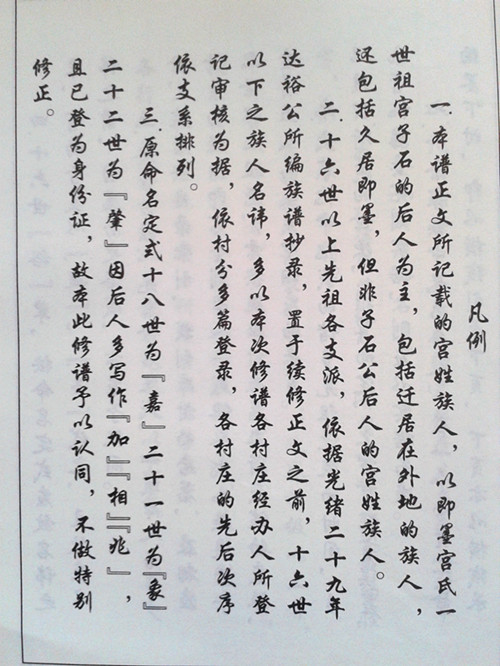 凡例
一.本谱正文所记载的宫姓族人，以即墨宫氏一
世祖宫子石的后人为主，包括迁居在外地的族人，
还包括久居即墨，但非子石公后人的宫姓族人。
二.十六世以上先祖各支派，依据光绪二十九年
达裕公所编族谱抄录，置于续修正文之前，十六世
以下之族人名讳，多以本次修谱各村庄经办人所登
记审核为据，依村分多篇登录，各村庄的先后次序
依支系排列。
三.原命名定式十八世为『嘉』二十一世为『象』
二十二世为『肇』因后人多写作『加』『相』『兆』，
且已登为身份证，故本此修谱予以认同，不做特别
修正。